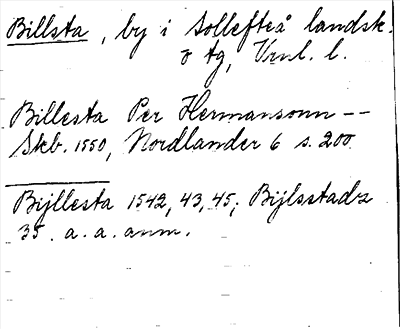 Billsta, by i Sollefteå landsk.
o tg, Vrnl. l.
Billesta Per Hermansonn --
Skb. 1550, Nordlander 6 s. 200
Bijllesta 1542, 43, 45; Bijlsstadz
35. a. a. anm.